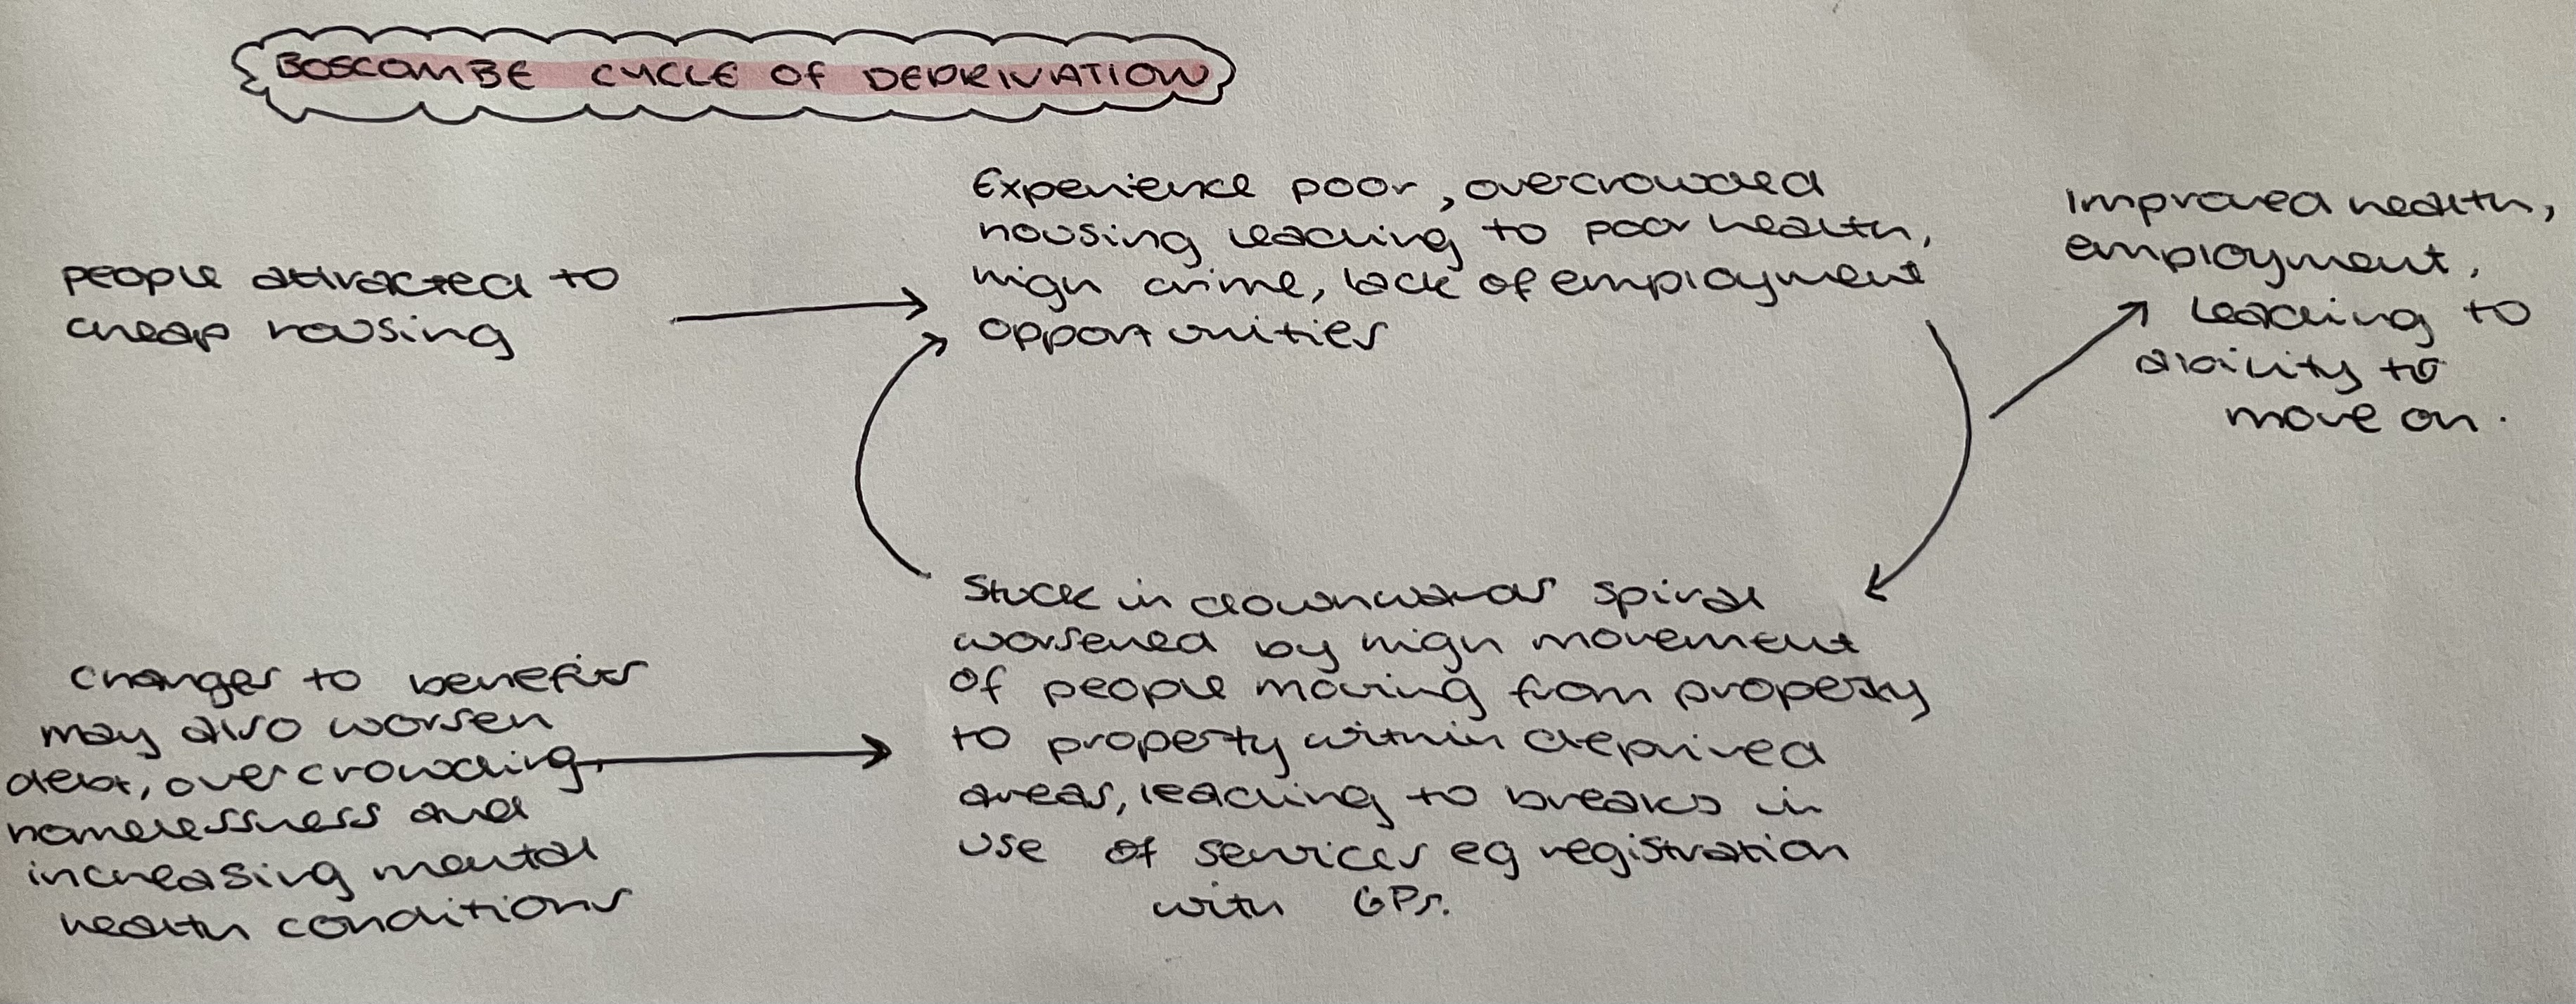 BOSCOMBE CYCLE OF DEPRIVATION
people attracted to
cheap housing
Experience poor, overcrowded
housing leading to poor health,
high crime, lack of employment
opportunities
Improved health,
employment,
leading to
ability to
move on.
Stuck in downwards spiral
worsened by high movement
of people moving from property
to property within deprived
areas, leading to breaks in
use of services eg registration
with GPs.
Changes to benefits
may also worsen
debt, overcrowding,
homelessness and
increasing mental
health conditions